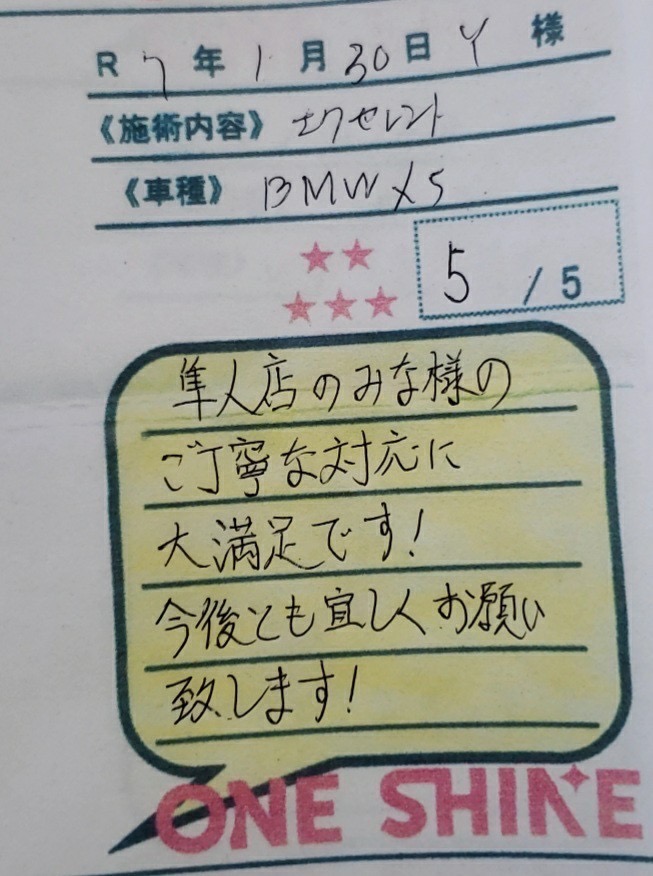 R 7年1月30日 Y 様
《施術内容》 エクセレント
《車種》 BMW X5
★★
★★★ 5 / 5
隼人店のみな様の
ご丁寧な対応に
大満足です!
今後とも宜しくお願い
致します!
ONE SHINE